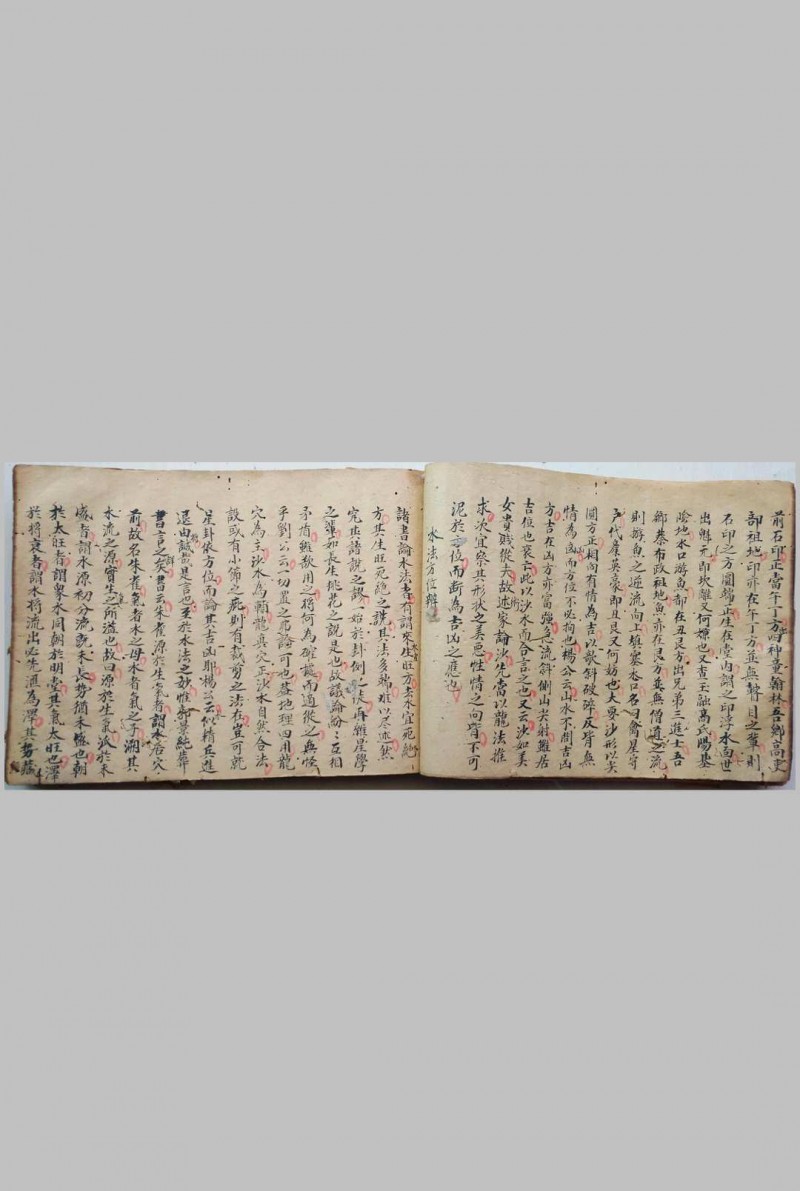 前石印正當午丁方四种童翰林吾鄉高吏
部祖地印亦在午丁方並無瞽目之輩則
石印之方圓端正生在堂內謂之印浮水面世
出觧元即坎離又何嫌也又查王融髙氏陽基
陰地水口游魚都在丑艮方出兄弟三進士吾
鄉蔡布政祖地魚亦在艮方並無僧道之流
則游魚之逆流向上填塞水口名曰禽星守
户代産英豪即丑艮又何妨也大要沙形以尖
圓方正相向有情為吉以欹斜破碎反背無
情為凶而方位不必拘也楊公云山水不問吉凶
方吉在凶方亦富強急流斜側山尖射雖居
吉位也衰亡此以沙水而合言之也又云沙如美
女貴賤從夫故述家論沙先當以龍法推
求次宜察其形狀之美惡性情之向背不可
泥於方位而断為吉凶之應也
水法方位辯
諸書論水法者有謂來水生旺方去水宜死絶
方其生旺死絶之説其法多端难以尽述然
究其語説之謬一始於卦例一
之輩如長生桃花之説是也故議論紛〻互相
矛盾縱欲用之將何為確議而適從之無怪
乎劉公云一切置之毋論可也葢地理四用龍
穴為主沙水為輔龍真穴正沙水自然合法
設或有小節之疵則有裁剪之法在豈可就
星卦依方位而論其吉凶耶楊公云從精兵進
退由誠哉是言也至於水法之妙惟郭景純葬
書言之矣葬書云朱雀源於生氣者謂水居穴
前故名朱雀氣者水之母水者氣之子溯其
水流之源實生之所溢也故曰源於生氣派於未
盛者謂水源初分流説未長势猶未盛也朝
於太旺者謂衆水同朝於明堂其氣太旺也澤
於將衰者謂水將流出必先滙為澤其势蕩